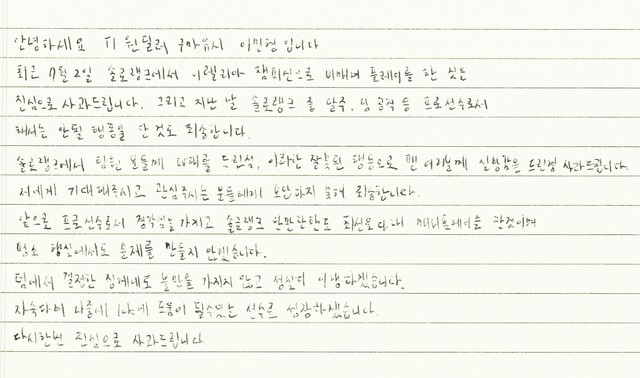 안녕하세요 T1 원딜러 구마유시 이민형 입니다
최근 7월 2일 솔로랭크에서 이렐리아 챔피언으로 비매너 플레이를 한 것은
진심으로 사과드립니다. 그리고 지난 날 솔로랭크 중 탈주, 인 공격 등 프로선수로서
해서는 안될 행동을 한것도 죄송합니다.
솔로랭크에서 팀원 분들께 피해를 드린점, 이러한 잘못된 행동으로 팬 여러분께 실망감을 드린점 사과드립니다.
저에게 기대해주시고 관심주시는 분들에게 보답하지 못해 죄송합니다.
앞으로 프로선수로서 경각심을 가지고 솔로랭크 한판한판도 최선을 다해 매너플레이를 할것이며
평소 행실에서도 문제를 만들지 않겠습니다.
팀에서 결정한 징계에도 불만을 가지지 않고 성실히 이행하겠습니다.
자숙하며 나중에 도움이 될수있는 선수로 성장하겠습니다.
다시한번 진심으로 사과드립니다